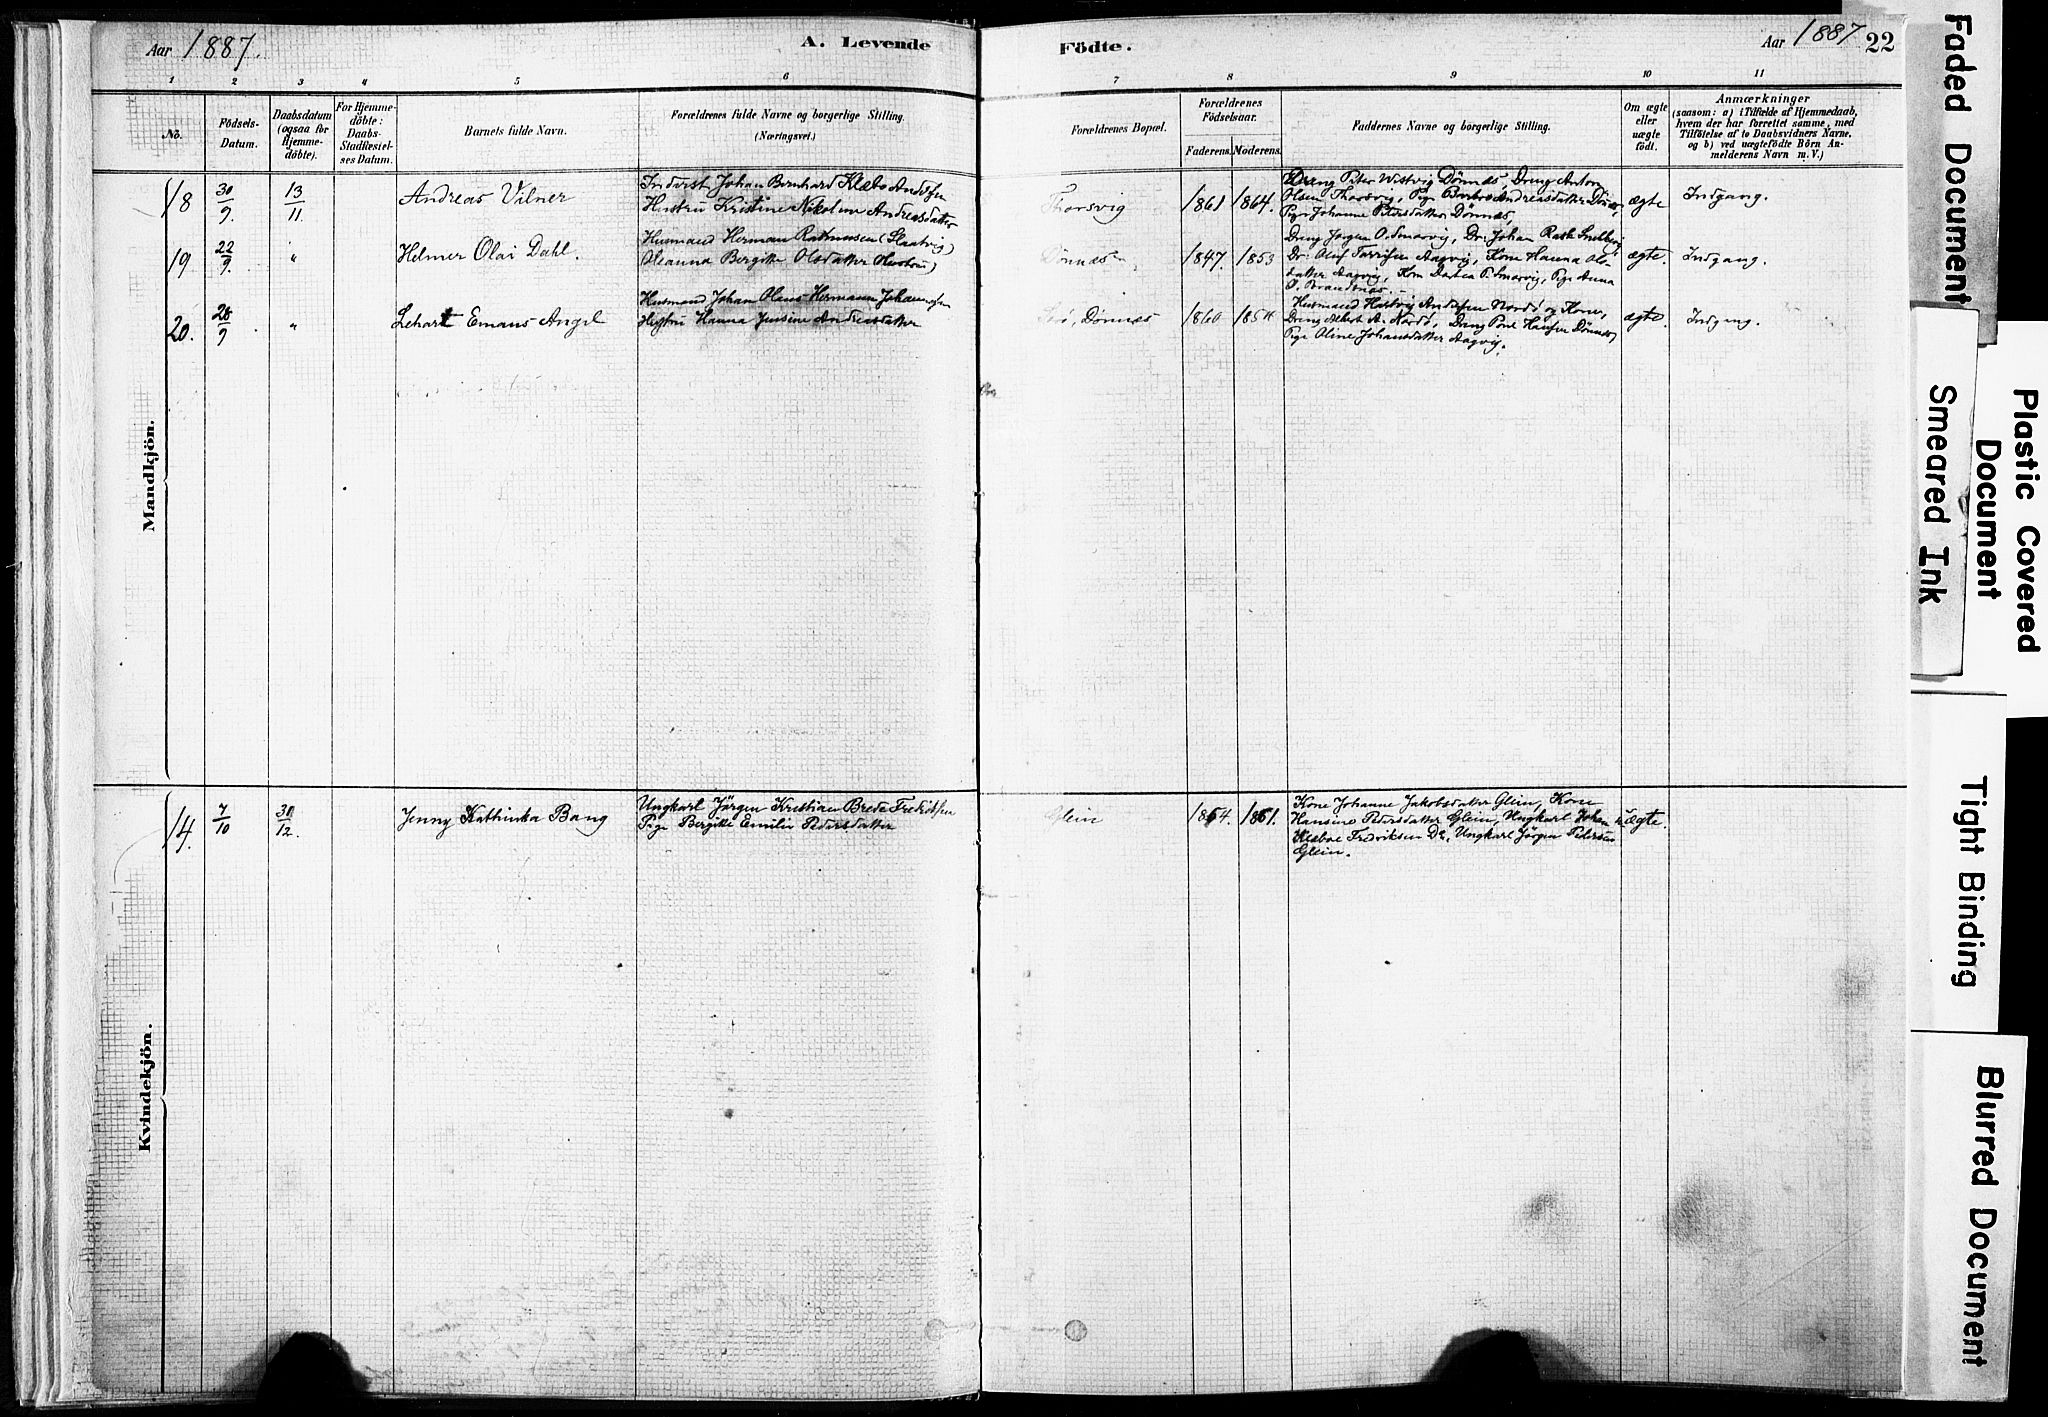 Aar 1887.
A. Levende
Födte.
Aar 1887
22
1 2 3 4 5 6 7 8 9 10 11
No.
Födsels-
Datum.
Daabsdatum
(ogsaa for
Hjemme-
döbte).
For Hjemme-
döbte:
Daabs-
Stadfæstel-
ses Datum.
Barnets fulde Navn.
Forældrenes fulde Navne og borgerlige Stilling.
(Næringsvei.)
Forældrenes Bopæl.
Forældrenes
Födselsaar.
Faderens. Moderens.
Faddernes Navne og borgerlige Stilling.
Om ægte
eller
uægte
födt.
Anmærkninger
(saasom: a) i Tilfælde af Hjemmedaab,
hvem der har forrettet samme, med
Tilföielse af to Daabsvidners Navne.
og b) ved uægtefödte Börn An-
melderens Navn m. V.)
Mandkjön.
18
30/9.
13/11
Andreas Vilner
Inderst Johan Bernhard Klæbo Andersen
Hustru Kristine Nikoline Andreasdatter
Thorsvig
1861 1864.
Dreng Peter Wistvig Dönnæs, Dreng Anton
Olsen Thorsvig, Pige Andreasdatter Dönnæs,
Pige Johanne Petersdatter Dönnæs,
ægte
Indgang.
19
22/9.
"
Helmer Olai Dahl.
Husmand Herman Rasmussen (Slaatvig)
Oleanna Bergitte Olsdatter (Hustru)
Dönnæs
1847. 1853
Dreng Jørgen O. Smorvig, Dr. Johan
Dr. Oluf Aagvig, Kone Hanna Ols-
datter Aagvig, Kone P. Smorvig, Pige Anna
O. Brandsnæs.
ægte.
Indgang.
20.
28/9
"
Lehart Emans Angel
Husmand Johan Olaus Hermann Johannesen
Hustru Hanna Jensine Andreasdatter
Dönnæs
1860 185
Husmand Hartvig Andersen Nordö og Kone,
Dreng Albert A. Nordö, Dreng Hansen Dönnæs,
Pige Oline Johansdatter Aagvig.
ægte.
Indgang.
Kvindekjön.
14.
7/10
30/12.
Jenny Kathinka Bang
Ungkarl Jörgen Kristian Breda Fredriksen
Pige Bergitte Emilie Pedersdatter
Glein
1864. 1861.
Kone Johanne Jakobsdatter Glein, Kone
Hansine Pedersdatter Glein, Ungkarl Johan
Klæboe Fredriksen Do, Ungkarl Jörgen Pedersen
Glein.
uægte.
Faded Document
Smeared Ink
Plastic Covered
Document
Tight Binding
Blurred Document